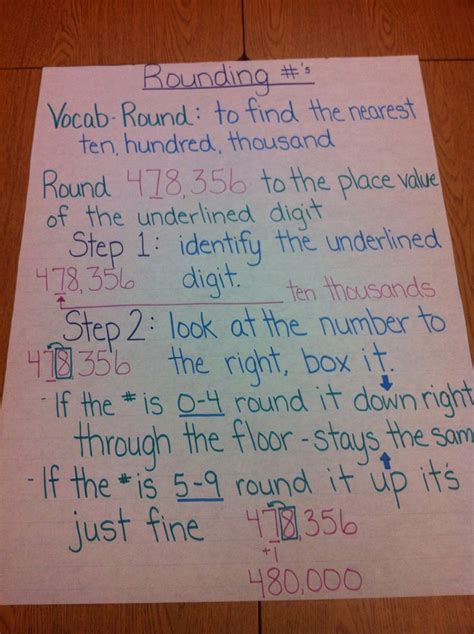 Rounding #'s
Vocab-Round: to find the nearest
ten, hundred, thousand
Round 478,356 to the place value
of the underlined digit
Step 1: identify the underlined
478,356 digit.
ten thousands
Step 2: look at the number to
478,356 the right, box it.
- If the # is 0-4 round it down right
through the floor - stays the sam
- If the # is 5-9 round it up it's
just fine 478,356
+1
480,000